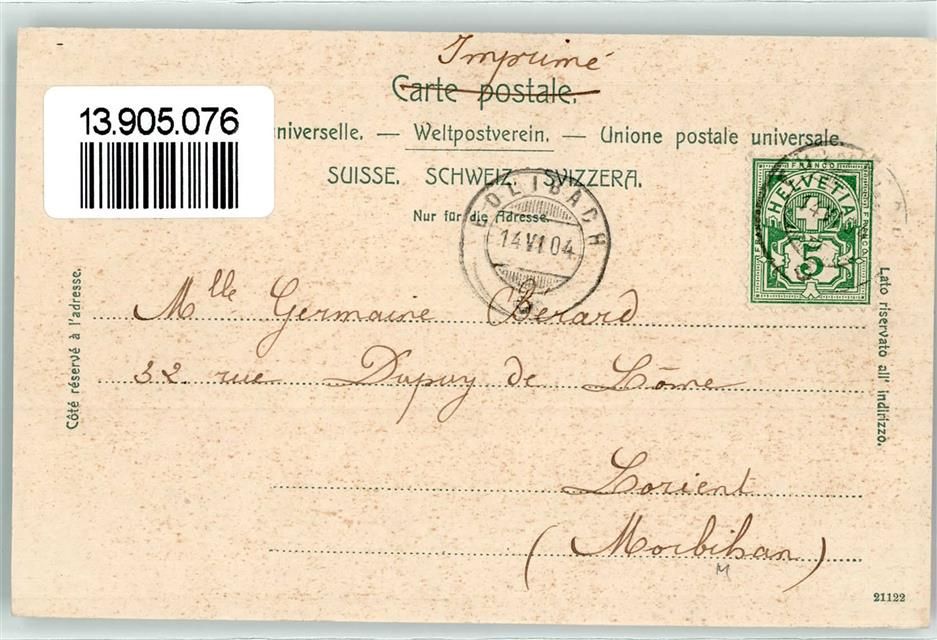 Imprimé
Carte postale.
13.905.076
niverselle. — Weltpostverein. — Unione postale universale.
SUISSE. SCHWEIZ. SVIZZERA.
Nur für die Adresse.
14 VI 04
FRANCO
HELVETIA
5
Côté réservé à l'adresse.
Lato riservato all' indirizzo.
Mlle Germaine Berard
32 rue Dupuy de Lôme
Lorient
(Morbihan)
M
21122